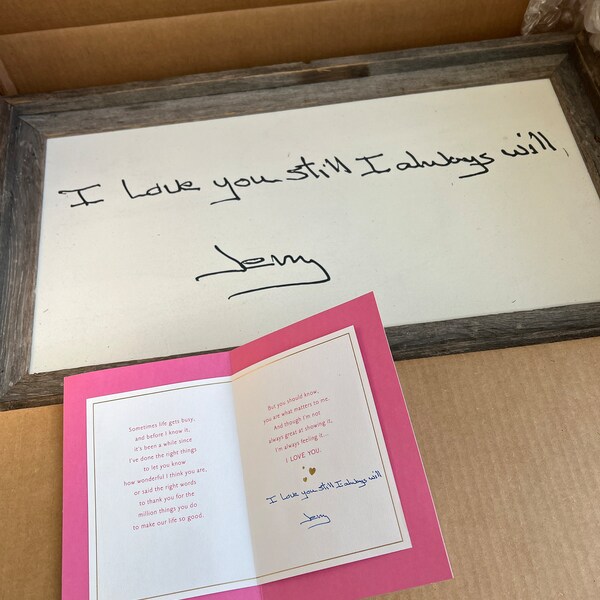 I Love you still I always will,
Jerry
Sometimes life gets busy,
and before I know it,
it's been a while since
I've done the right things
to let you know
how wonderful I think you are,
or said the right words
to thank you for the
million things you do
to make our life so good.
But you should know,
you are what matters to me.
And though I'm not
always great at showing it,
I'm always feeling it...
I LOVE YOU.
I Love you still I always will
Jerry